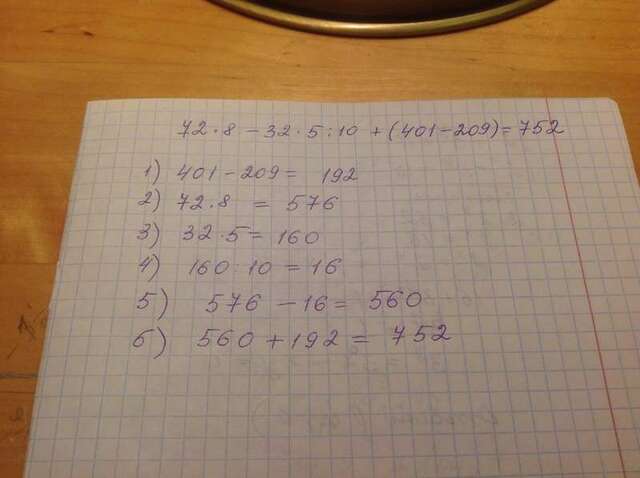 72·8 - 32·5:10 + (401-209) = 752
1) 401 - 209 = 192
2) 72·8 = 576
3) 32·5 = 160
4) 160:10 = 16
5) 576 - 16 = 560
6) 560 + 192 = 752